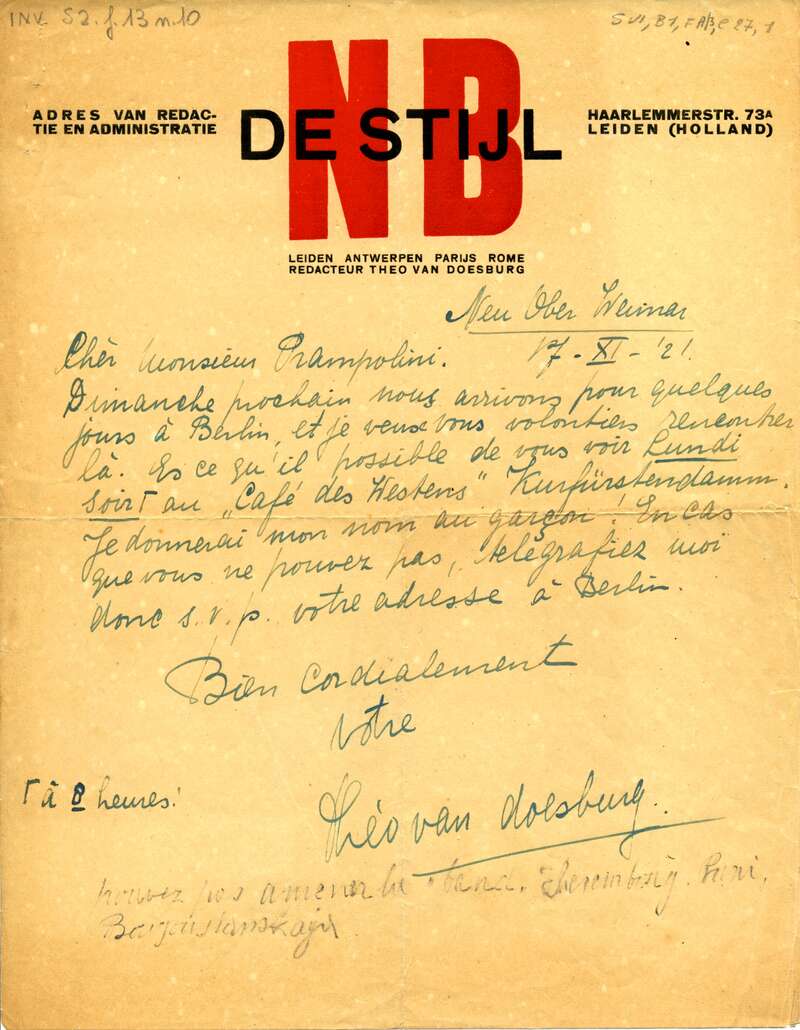 INV. S2. f. 13 n. 10
S VI, B1, F A/3, c 27, 1
NB
ADRES VAN REDAC-
TIE EN ADMINISTRATIE
DE STIJL
HAARLEMMERSTR. 73A
LEIDEN (HOLLAND)
LEIDEN ANTWERPEN PARIJS ROME
REDACTEUR THEO VAN DOESBURG
Neu Ober Weimar
17 - XI - '21.
Chèr Monsieur Prampolini.
Dimanche prochain nous arrivons pour quelques
jours à Berlin, et je veux vous volontiers rencontrer
là. Es ce qu'il possible de vous voir Lundi
soir Γ au „Café des Westens" Kurfürstendamm.
Je donnerai mon nom au garçon! En cas
que vous ne pouvez pas, télégrafiez moi
donc s.v.p. votre adresse à Berlin.
Bien cordialement
votre
Γ à 8 heures!
Théo van Doesburg.
pouvez pas amener